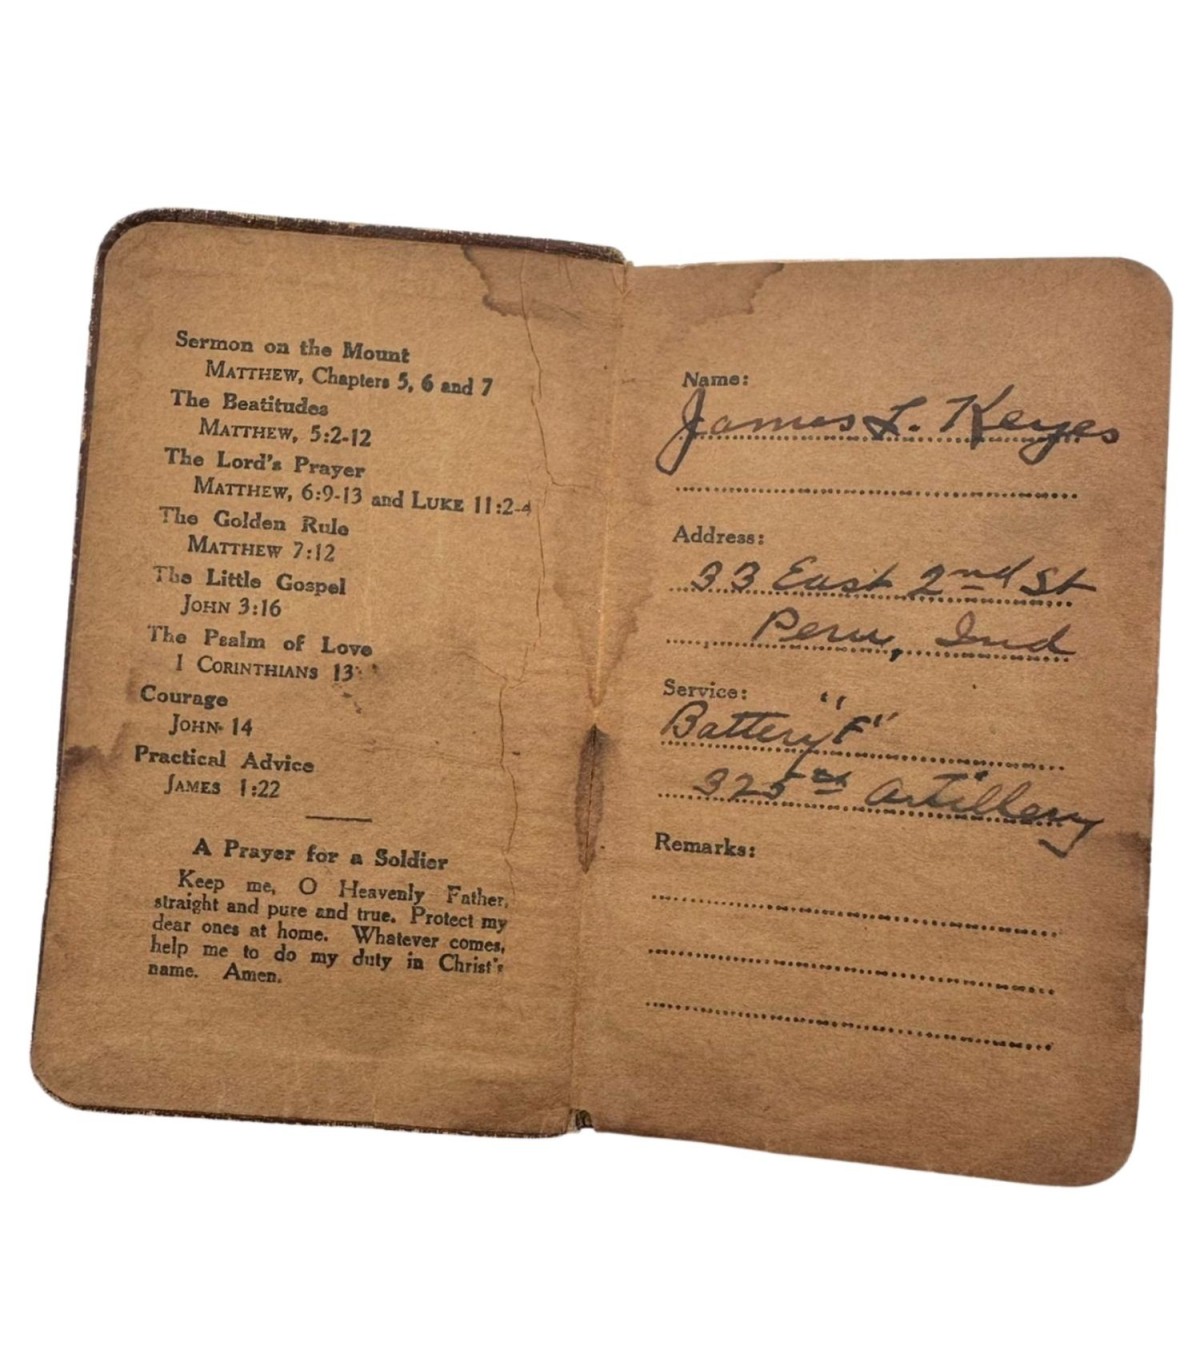 Sermon on the Mount
MATTHEW, Chapters 5, 6 and 7
The Beatitudes
MATTHEW, 5:2-12
The Lord's Prayer
MATTHEW, 6:9-13 and LUKE 11:2-4
The Golden Rule
MATTHEW 7:12
The Little Gospel
JOHN 3:16
The Psalm of Love
1 CORINTHIANS 13
Courage
JOHN 14
Practical Advice
JAMES 1:22
A Prayer for a Soldier
Keep me, O Heavenly Father,
straight and pure and true. Protect my
dear ones at home. Whatever comes,
help me to do my duty in Christ's
name. Amen.
Name:
James L. Keyes
Address:
33 East 2nd St
Peru, Ind
Service:
Battery "F"
325 Artillery
Remarks: